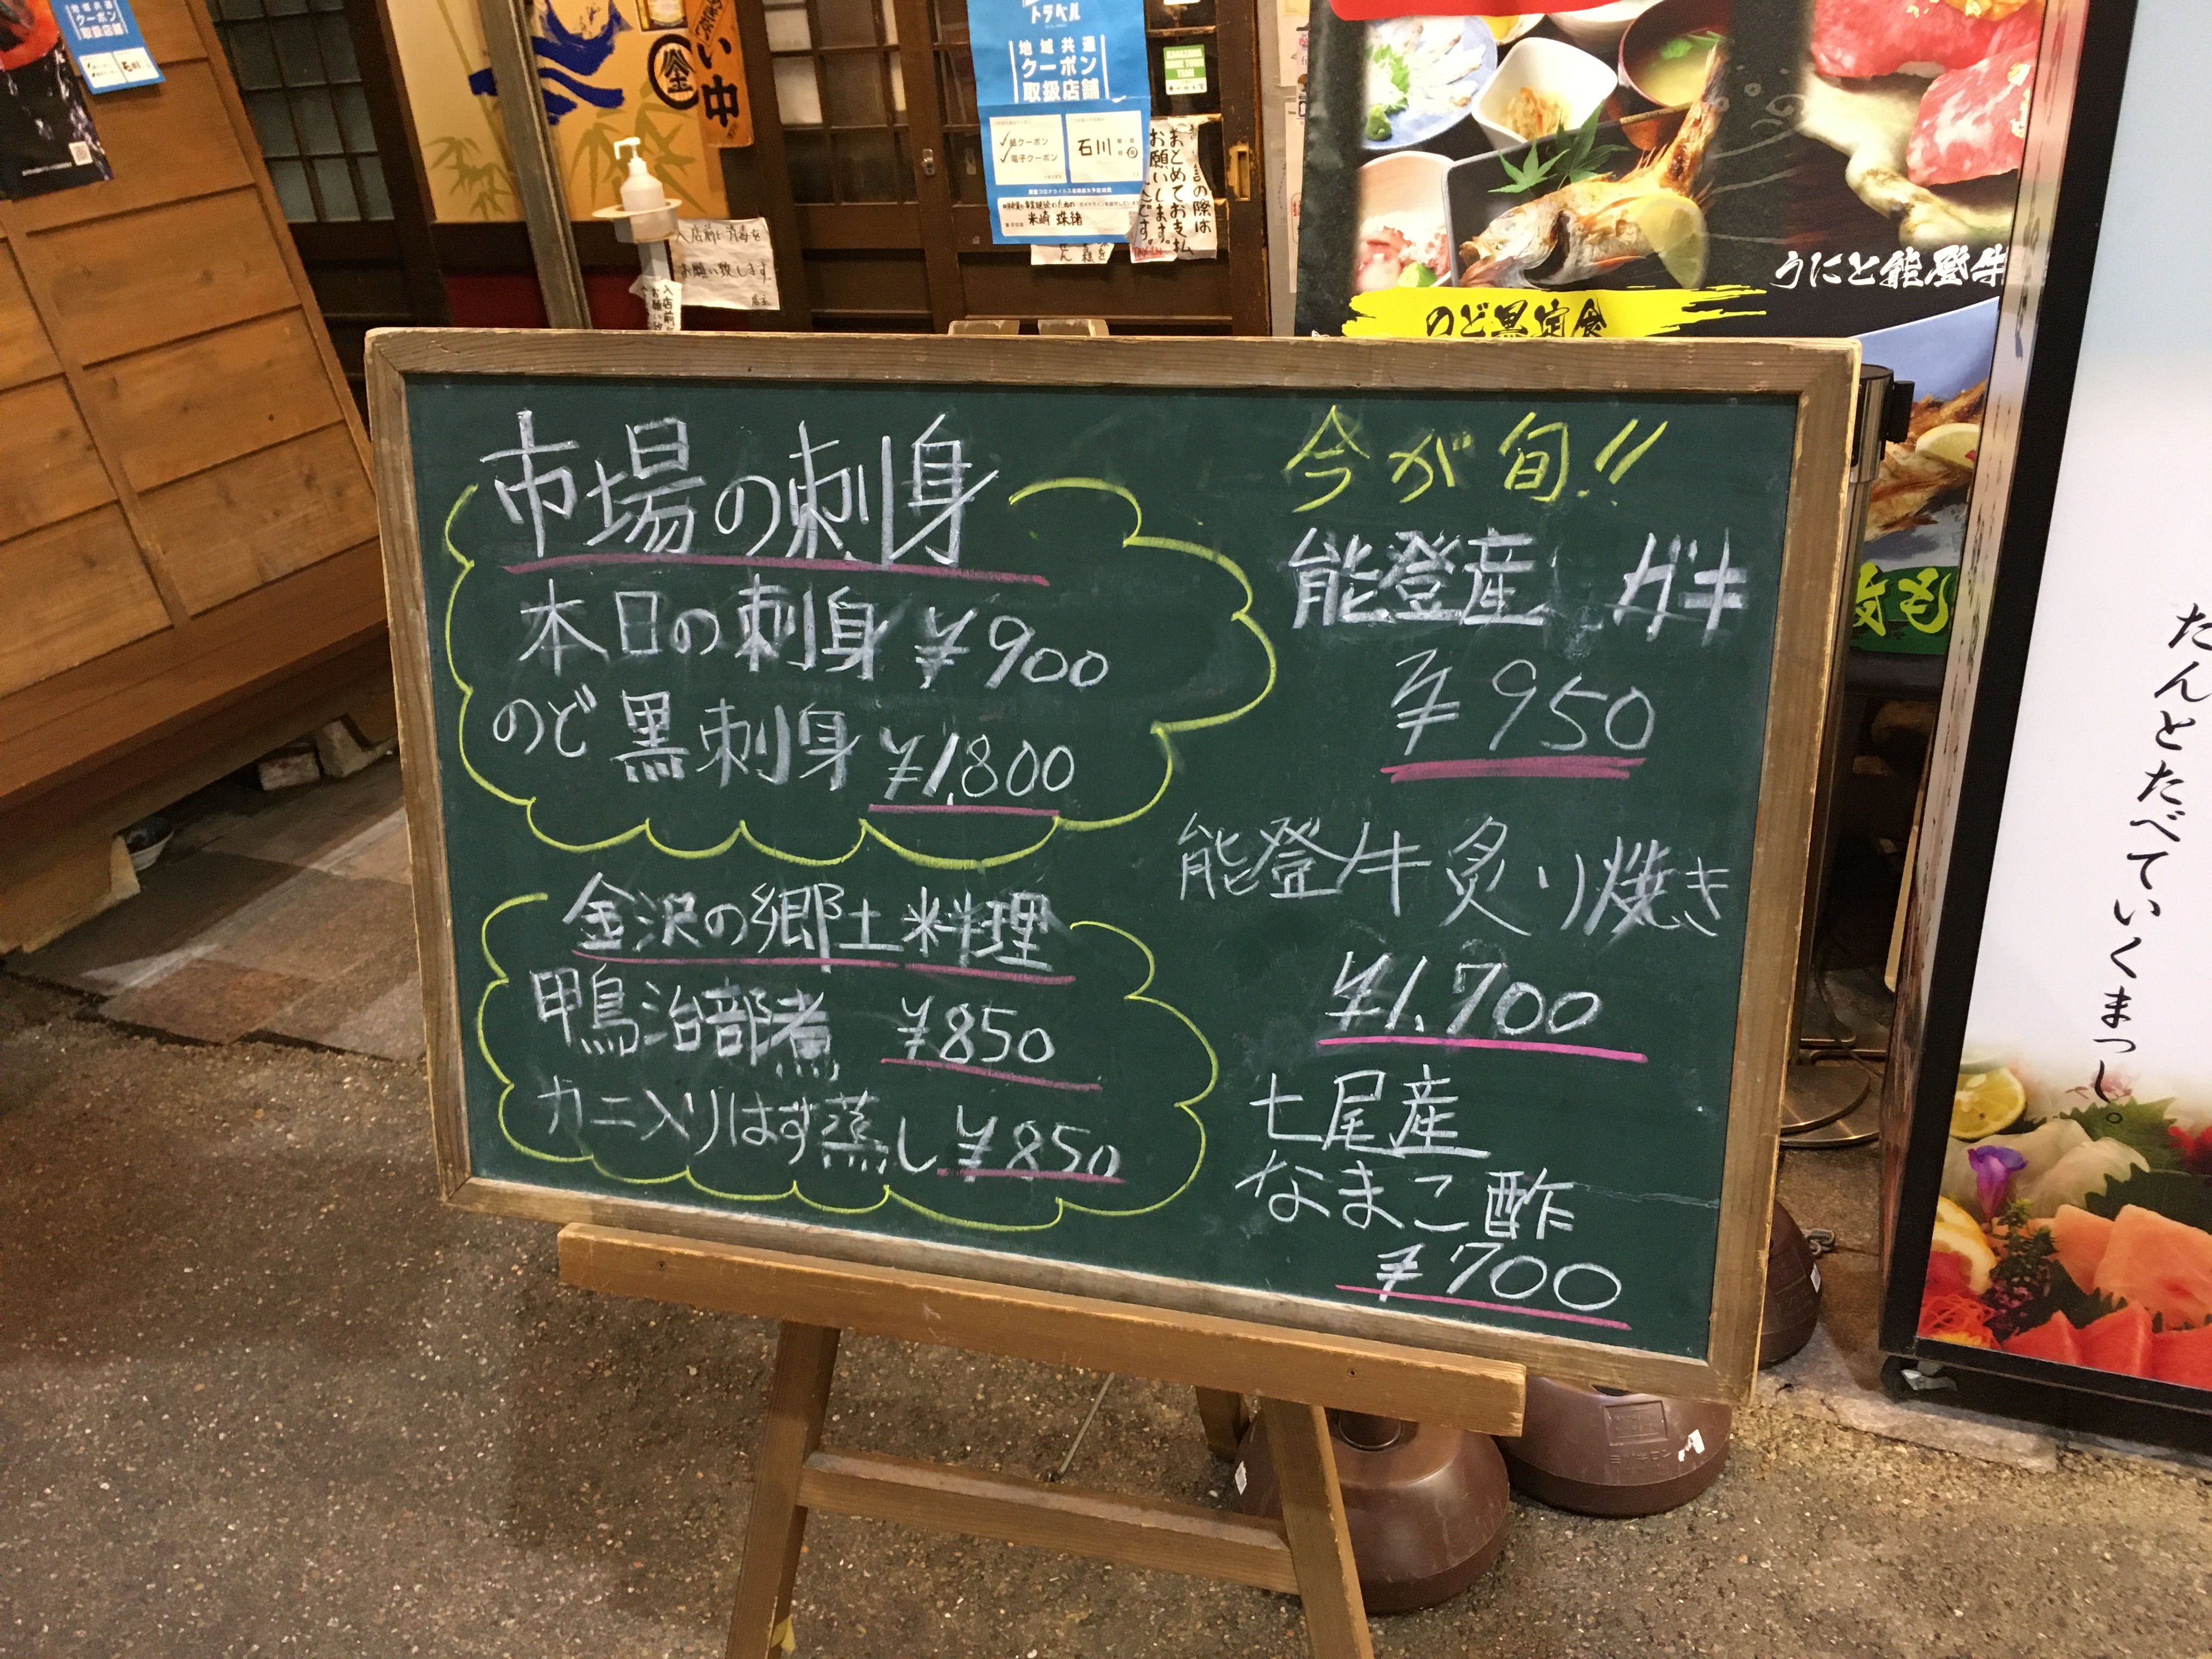 市場の刺身
本日の刺身 ¥900
のど黒刺身 ¥1,800
金沢の郷土料理
鴨治部煮 ¥850
カニ入りはす蒸し ¥850
今が旬!!
能登産 ガキ
¥950
能登牛炙り焼き
¥1,700
七尾産
なまこ酢
¥700
トラベル
地域共通
クーポン
取扱店舗
紙クーポン
電子クーポン
石川
地域共通
クーポン
取扱店舗
入店前に消毒を
お願い致します。
店主
い中
KANAZAWA
HOME TOWN
TEAM
の際は
まとめてお支払
お願いします。
のど黒定食
うにと能登牛
たんとたべていくまっし。